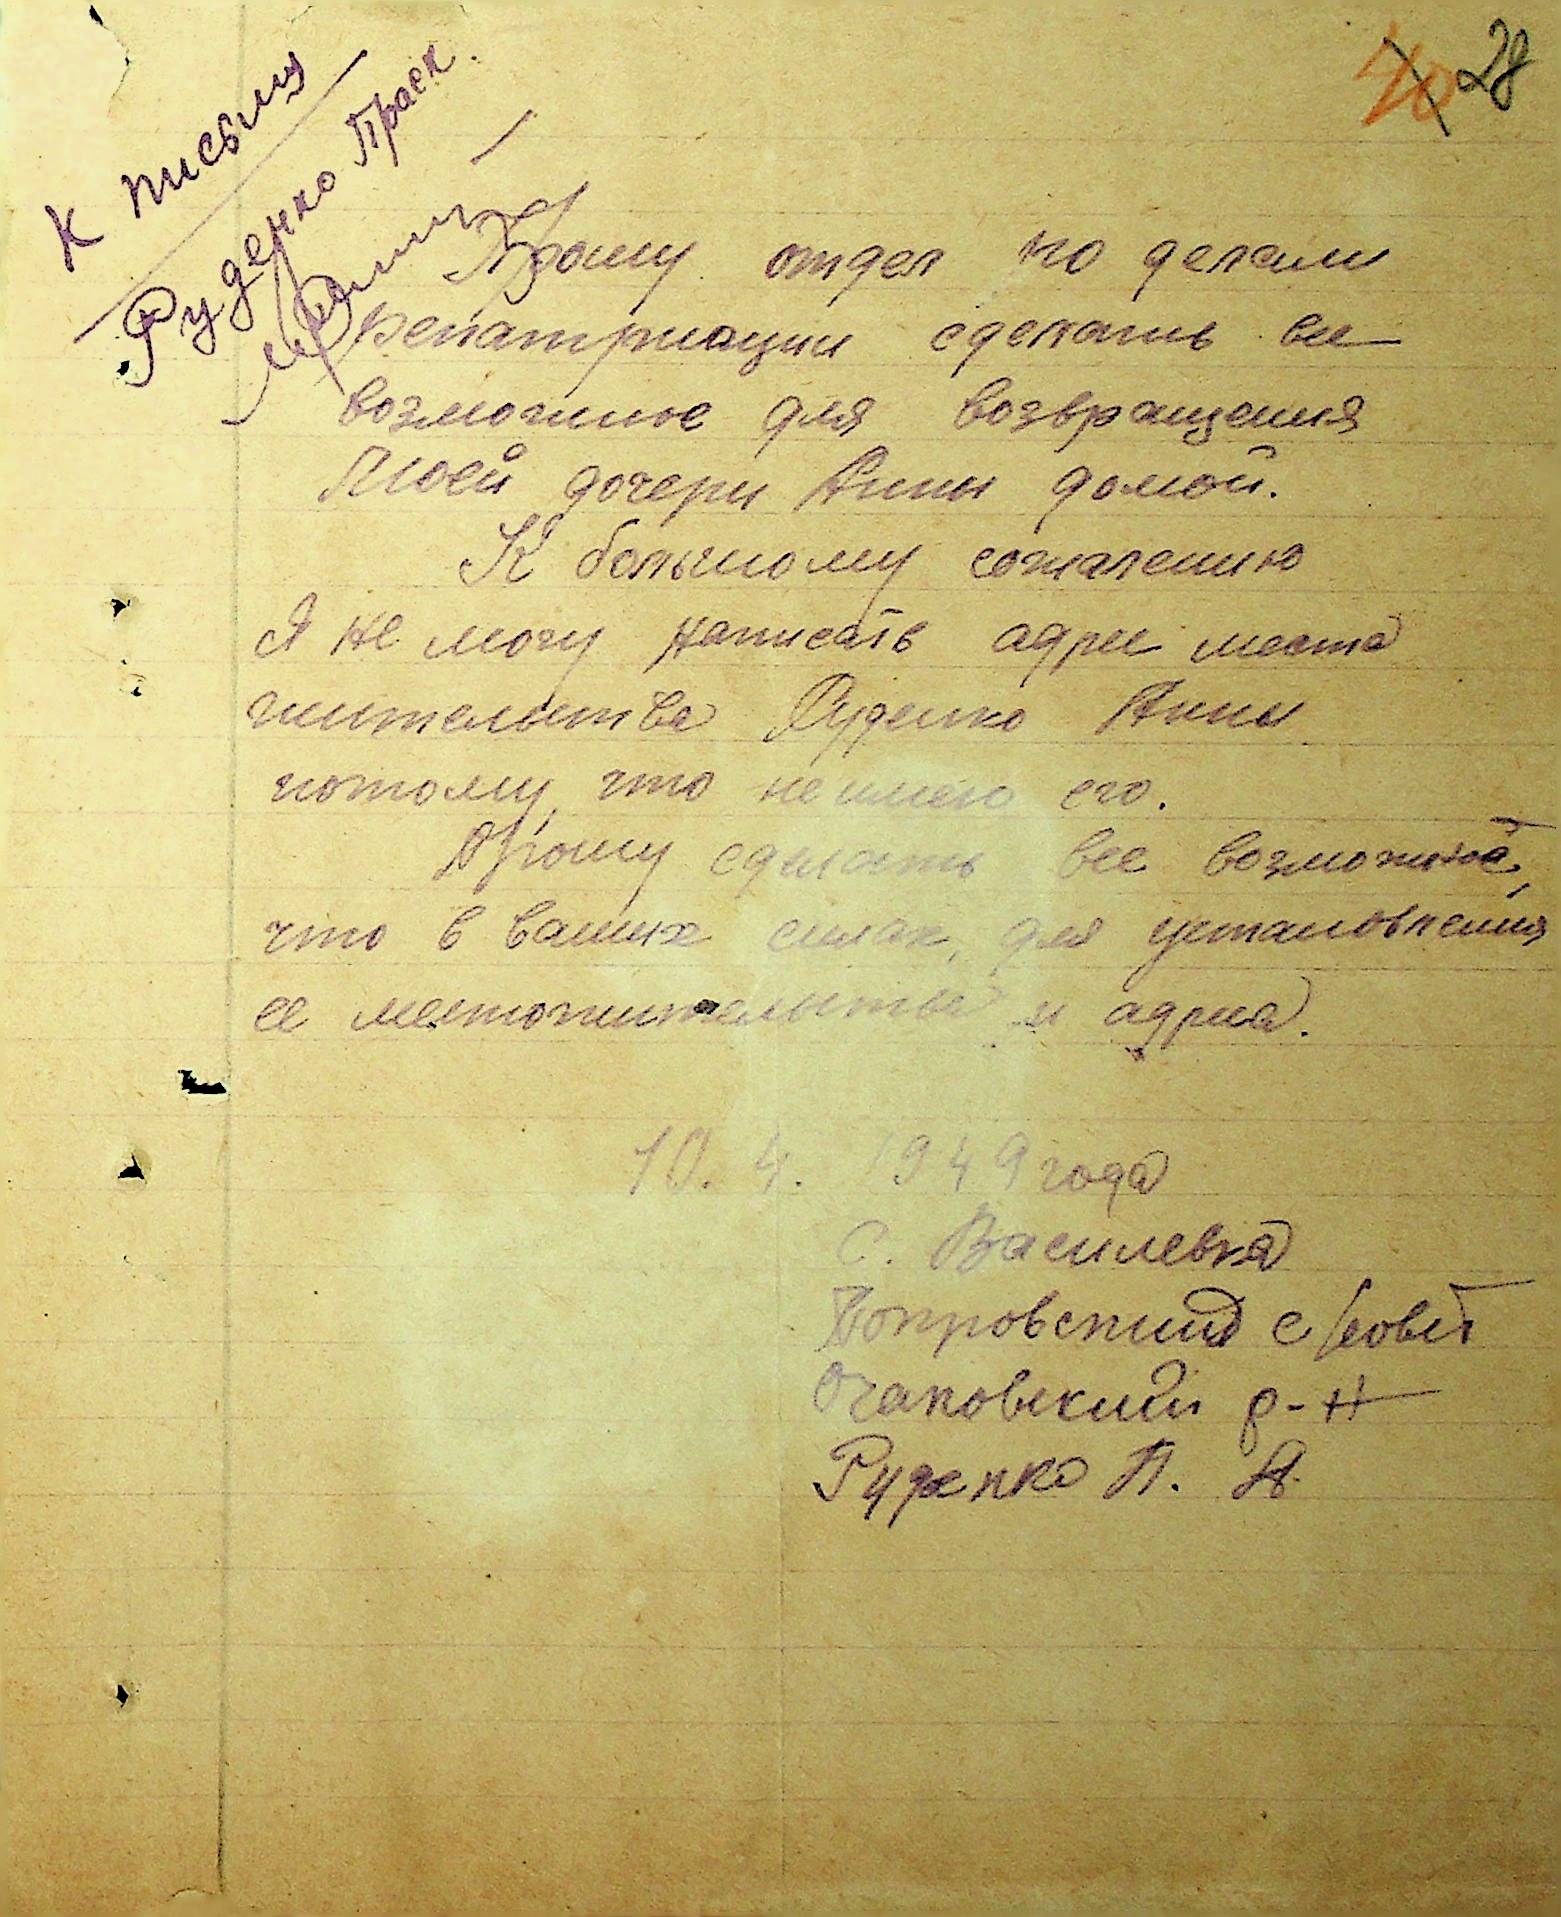 40 28
К письму
Руденко Праск.
Прошу отдел по делам
репатриации сделать все
возможное для возвращения
моей дочери Анны домой.
К большому сожалению
я не могу написать адрес места
жительства Руденко Анны
потому, что не имею его.
Прошу сделать все возможное,
что в ваших силах, для установления
ее местожительства и адреса.
10. 4. 1949 года
с. Василевка
Покровский с/совет
Очаковский р-н
Руденко П. А.